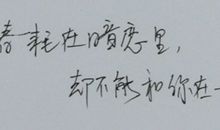 春耗在暗恋里，
却不能和你在一